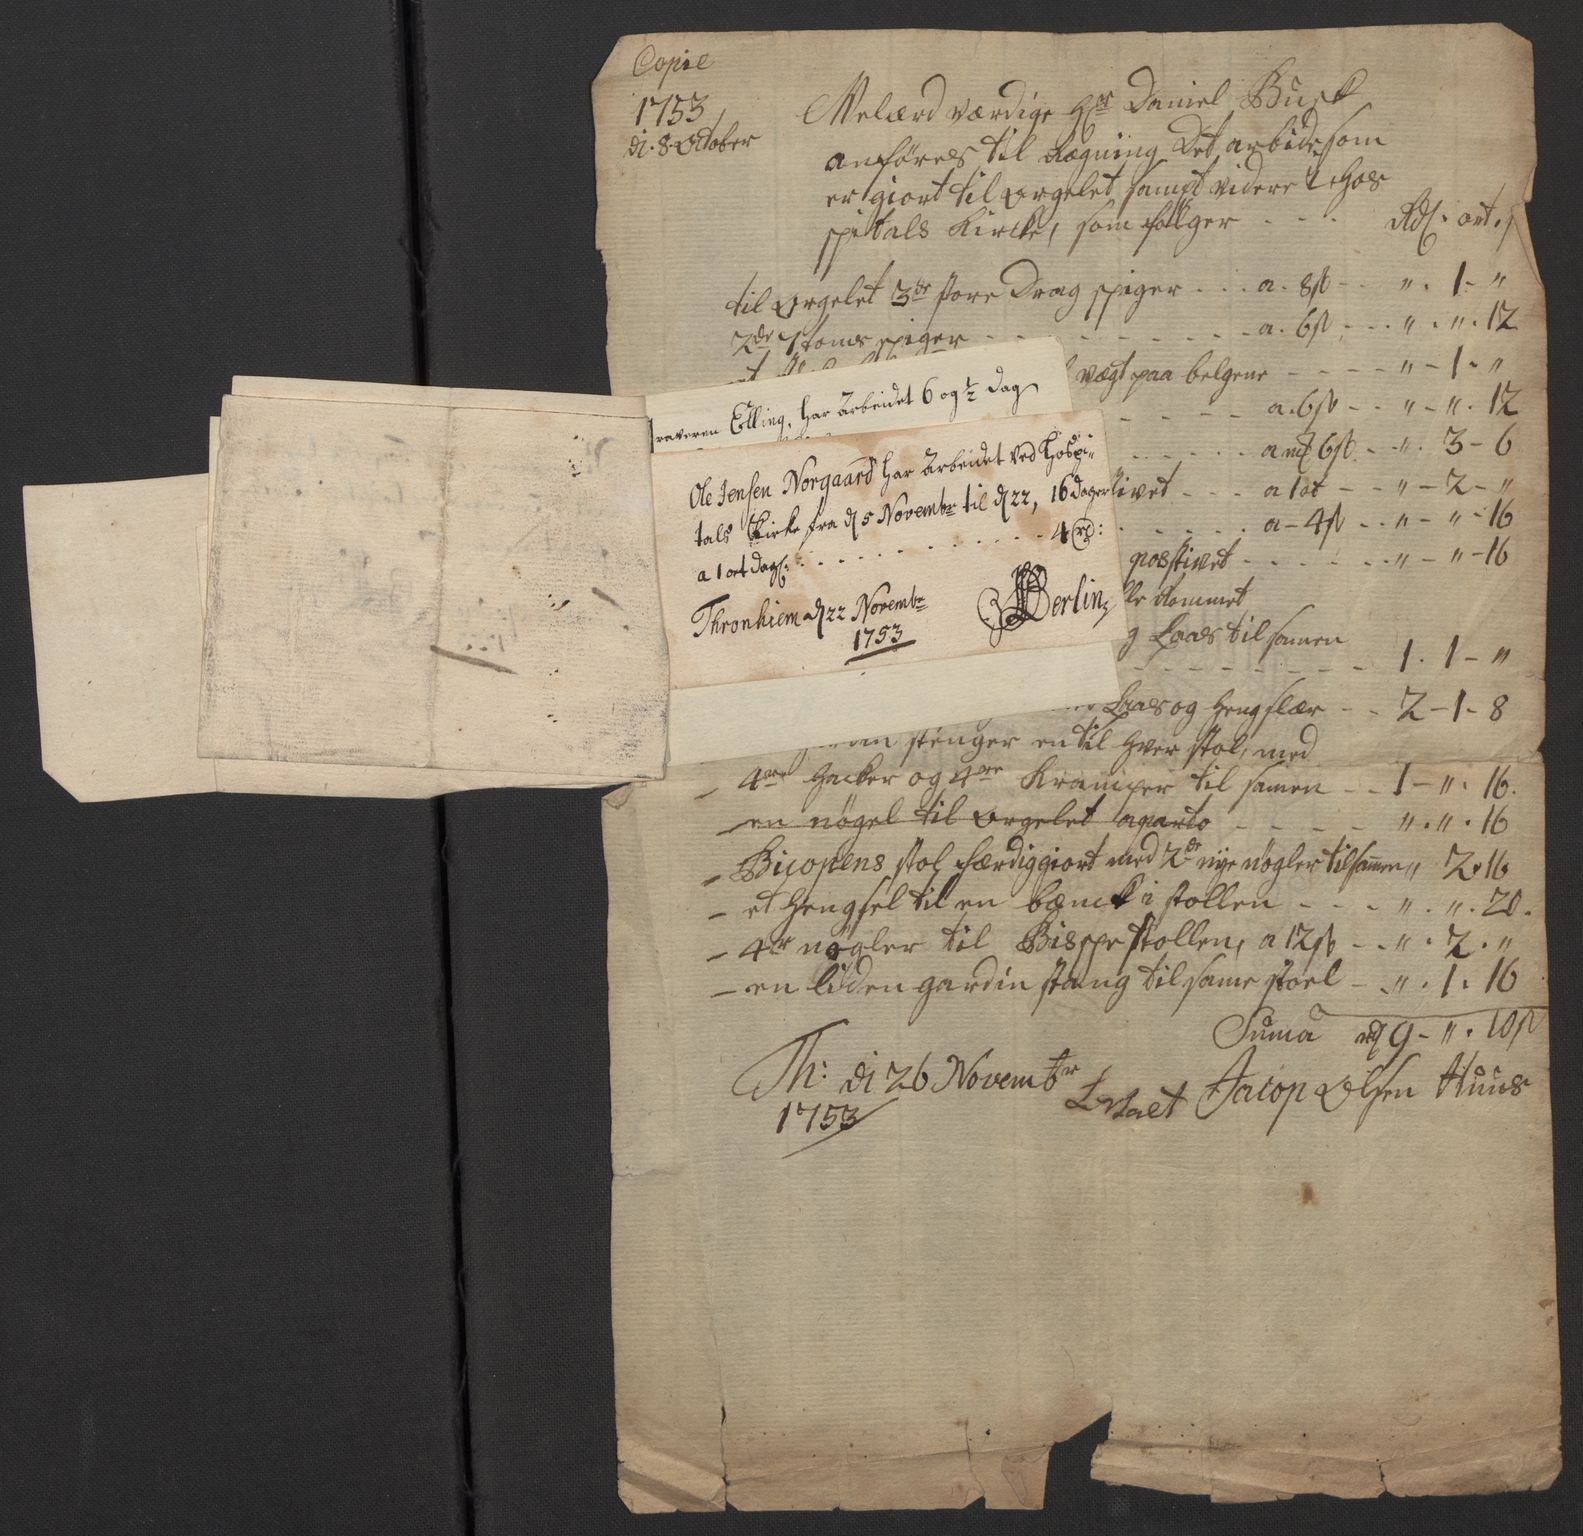 Copie
1753
di. 8 October
Velærd værdige Hr Daniel Busk
anføres til Rægning Det arbide som
er giort til orgelet samt videre i Hos
spitals Kircke, som følger - - - Rdl. ort. s
til orgelet 3de store Drag spiger . . . a. 8s - - " . 1 - "
2de stoms spiger - - - a. 6s - . " . " . 12
vægt paa belgene - - - - " - 1 - "
a. 6s - - " - " . 12
a mk 6s - - " . 3 - 6
a 1 ort - - " - 2 - "
a - 4s - - " - " - 16
posstivet - - - - " - " - 16
dommet
g Laas til samen
1 . 1 - "
Laas og hengslær - - 2 - 1 - 8
stenger en til hver stol, med
- 4re hacker og 4re Kramper til samen - - 1 - " . 16.
en nøgel til orgelet aparto - - - - " . " . 16
- Bicopens stol færdiggiort med 2de nye nøgler tilsamen " 2 . 16
- et hengsel til en bænck i stollen - - - " . " . 20.
- 4r nøgler til Bispe stollen, a 12s - . " . 2 . "
- en liden gardin stang til same stoel - . " . 1 . 16
Suma rdl 9 - " . 10s
Th: di 26 Novembr
1753
Jacop Olsen Huus
raveren Elling, har Arbeidet 6 og ½ Dag
Ole Jensen Norgaard har Arbeidet ved Hospi-
tals Kirke fra d 5 Novembr til d 22, 16 dager
a 1 ort dagl: - - - - - - 4 rd:
Thronhiem d 22 Novembr
1753
Berlin